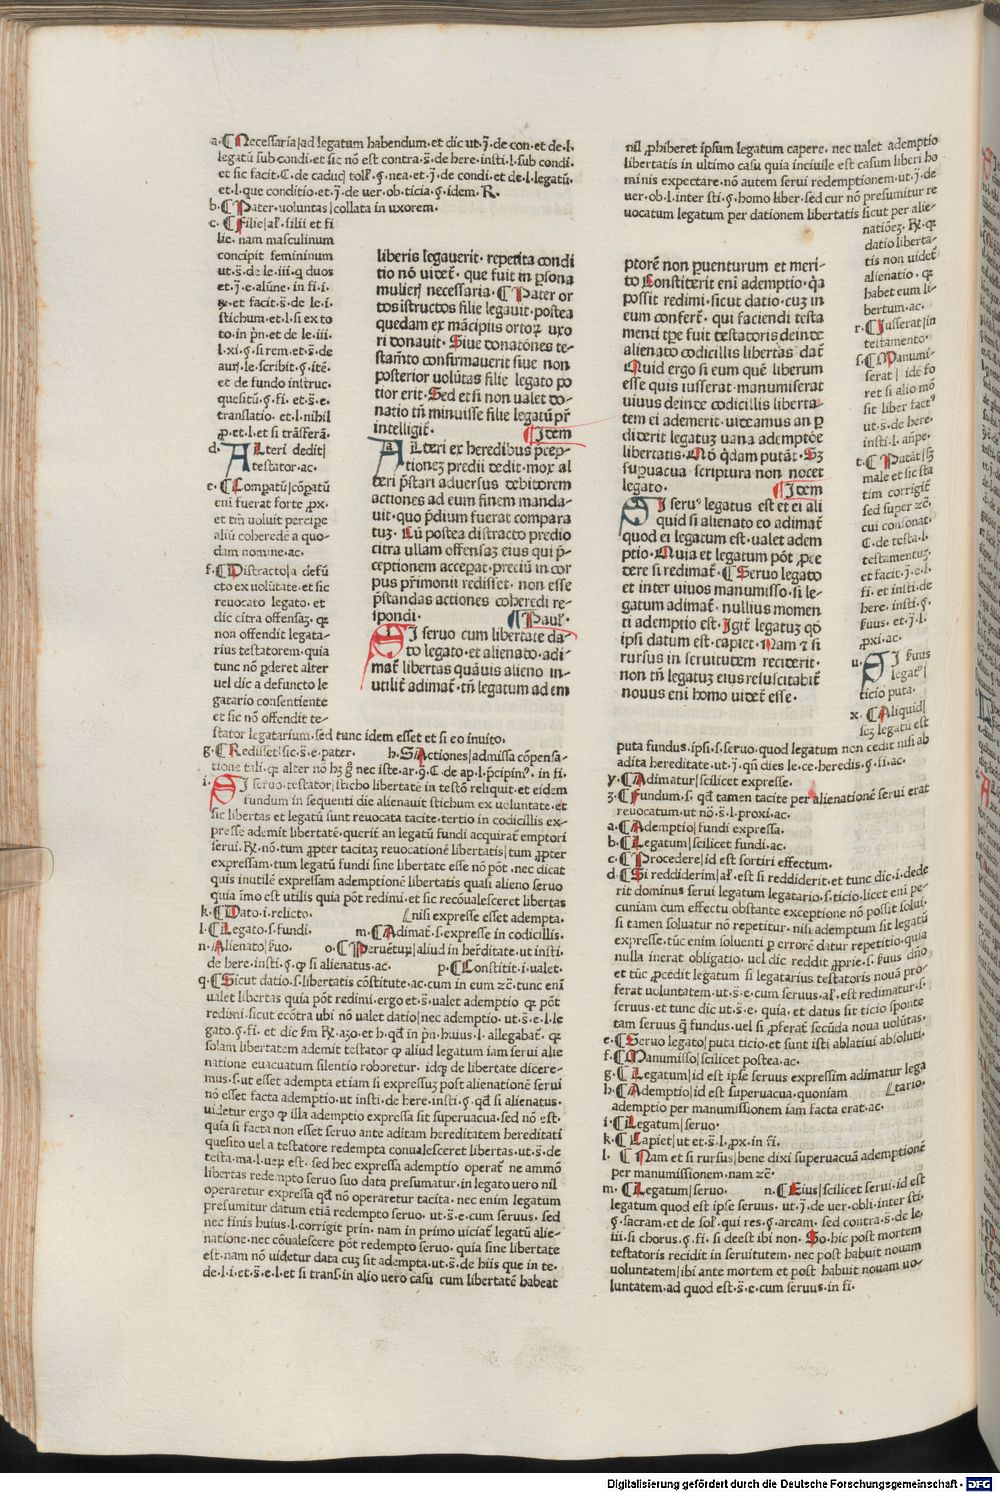 a·¶Necessaria|ad legatum habendum·et dic ut· j̃·de con·et de·l·
legatũ sub condi·et sic nõ est contra·s̃·de here·insti·l·sub condi·
et sic facit·C·de caducꝭ toll̃·§·nea·et·j̃·de condi·et de·l·legatũ·
et·l·que conditio·et·j̃·de uer·ob·ticia·§·idem·R·
b·¶Pater·uoluntas|collata in uxorem·
c·¶Filie|al̃·filii et fi
lie·nam masculinum
concipit femininum
ut·s̃·de le·iii·q duos
et·j̃·e·aliũe·in fi·i·
stichum·et·l·si ex to
to·in pñ·et de le·iii·
l·xi·§·si rem·et·s̃·de
aur̃·le·scribit·§·itẽ·
et de fundo instruc·
quesitũ·§·fi·et·s̃·e·
translatio·et·l·nihil
ꝓ·et·l·et si trãsferã·
d·ALteri dedit|
testator·ac·
e·¶Comꝑatũ|cõꝑatũ
eni fuerat forte ꝓx·
et tm̃ uoluit percipe
aliũ coheredẽ a quo-
dam nomine·ac·
f·¶Distracto|a defũ
cto ex uolũtate·et sic
reuocato legato·et
dic citra offensaꝫ·qꝛ
non offendit legata-
rius testatorem·quia
tunc nõ ꝑderet alter
uel dic a defuncto le
gatario consentiente
et sic nõ offendit te-
stator legatarium·sed tunc idem esset et si eo inuito·
g·¶Redisset|sic·s̃·e·pater· h·¶Actiones|admissa cõpensa-
i·SI seruo·testator|sticho libertatẽ in testõ reliquit·et eidem
fundum in sequenti die alienauit stichum ex uoluntate·et
sic libertas et legatũ sunt reuocata tacite·tertio in codicillis ex-
presse ademit libertatẽ·querit̃ an legatũ fundi acquirat̃ emptori
serui·R̃·nõ·tum ꝓpter tacitaꝫ reuocationẽ libertatis|tum ꝓpter
expressam·tum legatũ fundi sine libertate esse nõ põt·nec dicat
quis inutilẽ expressam ademptionẽ libertatis quasi alieno seruo
quia ĩmo est utilis quia põt redimi·et sic recõualesceret libertas
k·¶Dato·i·relicto· nisi expresse esset adempta·
l·¶Legato·s·fundi· m·¶Adimat̃·s·expresse in codicillis·
n·Alienato|s̃uo· o·¶Peruẽtuꝝ|aliud in her̃ditate·ut insti·
de here·insti·§·ꝙ si alienatus·ac· p·¶Constitit·i·ualet·
q·¶Sicut datio·s·libertatis cõstitute·ac·cum in eum ꝛc̃·tunc eni
ualet libertas quia põt redimi·ergo et·s̃·ualet ademptio qꝛ põt
redimi·sicut ecõtra ubi nõ ualet datio|nec ademptio·ut·s̃·e·l·le
gato·§·fi·et dic s̃m R̃·azo·et h·qd̃ in pñ·huius·l·allegabat̃·qꝛ
solam libertatem ademit testator ꝙ aliud legatum iam serui alie
natione euacuatum silentio roboretur·idqꝫ de libertate dicere-
mus·s·ut esset adempta etiam si expressuꝫ post alienationẽ serui
nõ esset facta ademptio·ut insti·de here·insti·§·qd̃ si alienatus·
uidetur ergo ꝙ illa ademptio expressa sit superuacua·sed nõ est·
quia si facta non esset seruo ante aditam hereditatem hereditati
quesito uel a testatore redempta conualesceret libertas·ut·s̃·de
testa·ma·l·ueꝝ est·sed hec expressa ademptio operat̃ ne ammõ
libertas redempto seruo suo data presumatur·in legato uero nil
operaretur expressa qd̃ nõ operaretur tacita·nec enim legatum
presumitur datum etiã redempto seruo·ut·s̃·e·cum seruus·sed
nec finis huius·l·corrigit prin·nam in primo uiciat̃ legatũ alie-
natione·nec cõualescere põt redempto seruo·quia sine libertate
est·nam nõ uidetur data cuꝫ sit adempta·ut·s̃·de hiis que in te·
de·l·i·et·s̃·e·l·et si trans·in alio uero casu cum libertatẽ habeat
liberis legauerit·repetita condi
tio nõ uidet̃·que fuit in ꝑsona
mulieꝭ necessaria·¶Pater or
tos istructos filie legauit·postea
quedam ex mãcipiis ortoꝝ uxo
ri donauit·Siue donatõnes te-
stam̃to confirmauerit siue non
posterior uolũtas filie legato po
tior erit·Sed et si non ualet do-
natio tñ minuisse filie legatũ pr̃
intelligit̃· ¶Idem
ALteri ex heredibus p̃cep-
tioneꝫ predii dedit·mox al
teri p̃stari aduersus debitorem
actiones ad eum finem manda-
uit·quo p̃dium fuerat compara
tuꝫ·Cũ postea distracto predio
citra ullam offensaꝫ eius qui p̃-
ceptionem acceꝑat·preciũ in cor
pus pr̃imonii redisset·non esse
p̃standas actiones coheredi re-
spondi· ¶Paul̃·
SI seruo cum libertate da-
to legato·et alienato·adi-
mat̃ libertas quãuis alieno in-
utilit̃ adimat̃·tñ legatum ad em
nil ꝓhiberet ipsum legatum capere·nec ualet ademptio
libertatis in ultimo casu quia inciuile est casum liberi ho
minis expectare·nõ autem serui redemptionem·ut·j̃·de
uer·ob·l·inter sti·§·homo liber·sed cur nõ presumitur re
uocatum legatum per dationem libertatis sicut per alie-
natiõeꝫ·R̃·qꝛ
datio liberta-
tis non uidet̃
alienatio·qꝛ
habet eum li-
bertum·ac·
r·¶Iusserat|in
testamento·
s·¶Manumi-
serat|idẽ fo
ret si alio mõ
sit liber fact᷒
ut·s̃·de here·
insti·l·añpe·
t·¶Putãt|sꝫ
male et sic sta
tim corrigit̃
sed super ꝛc̃·
cui consonat·
C·de testa·l·
testamentuꝫ·
et facit·j̃·e·l·
fi·et insti·de
here·insti·§·
s̃uus·et·j̃·l·
ꝓxi·ac·
u·SI s̃uus
legat᷒|
ticio puta·
x·¶Aliquid|
scꝫ legatũ est
ptorẽ non ꝑuenturum et meri-
to Constiterit eni ademptio·q̃a
possit redimi·sicut datio·cuꝫ in
eum confert̃·qui faciendi testa
menti tp̃e fuit testatoris deinde
alienato codicillis libertas dat̃
Quid ergo si eum quẽ liberum
esse quis iusserat·manumiserat
uiuus deinde codicillis liberta-
tem ei ademerit·uideamus an ꝑ
diderit legatuꝫ uana ademptõe
libertatis·Nõ q̃dam putãt·Sꝫ
suꝑuacua scriptura non nocet
legato· ¶Idem
SI seru᷒ legatus est et ei ali
quid si alienato eo adimat̃
quod ei legatum est·ualet adem
ptio·Quia et legatum põt ꝓce
dere si redimat̃·¶Seruo legato
et inter uiuos manumisso·si le-
gatum adimat̃·nullius momen
ti ademptio est·Igit̃ legatuꝫ qd̃
ipsi datum est·capiet·Nam ⁊ si
rursus in seruitutem reciderit·
non tñ legatuꝫ eius resuscitabit̃
nouus eni homo uidet̃ esse·
puta fundus·ipsi·s·seruo·quod legatum non cedit nisi ab
adita hereditate·ut·j̃·qñ dies le·ce·heredis·§·fi·ac·
y·¶Adimatur|scilicet expresse·
z·¶Fundum·s·qd̃ tamen tacite per alienationẽ serui erat
reuocatum·ut nõ·s̃·l·proxi·ac·
a·¶Ademptio|fundi expressa·
b·¶Legatum|scilicet fundi·ac·
c·¶Procedere|id est sortiri effectum·
d·¶Si reddiderim|al̃·est si reddiderit·et tunc dic·i·dede
rit dominus serui legatum legatario·s·ticio·licet eni pe-
cuniam cum effectu obstante exceptione nõ possit solui·
si tamen soluatur nõ repetitur·nisi ademptum sit legatũ
expresse·tũc enim soluenti ꝑ errorẽ datur repetitio·quia
nulla inerat obligatio·uel dic reddit ꝓprie·s·s̃uus dño
et tũc ꝓcedit legatum si legatarius testatoris nouã pro-
ferat uoluntatem·ut·s̃·e·cum seruus·al̃·est redimatur·s·
seruus·et tunc dic ut·s̃·e·quia·et datus sit ticio sponte
tam seruus q̃ fundus·uel si ꝓferat̃ secũda noua uolũtas·
e·¶Seruo legato|puta ticio·et sunt isti ablatiui absoluti·
f·¶Manumisso|scilicet postea·ac·
g·¶Legatum|id est ipse seruus expressim adimatur lega
h·¶Ademptio|id est superuacua·quoniam tario·
ademptio per manumissionem iam facta erat·ac·
i·¶Legatum|seruo·
k·¶Capiet|ut et·s̃·l·ꝓx·in fi·
l·¶Nam et si rursus|bene dixi superuacuã ademptionẽ
per manumissionem·nam ꝛc̃·
m·¶Legatum|seruo· n·¶Eius|scilicet serui·id est
legatum quod est ipse seruus·ut·j̃·de uer·obli·inter sti·
§·sacram·et de sol̃·qui res·§·aream·sed contra·s̃·de le·
iii·si chorus·§·fi·si deest ibi non·So·hic post mortem
testatoris recidit in seruitutem·nec post habuit nouam
uoluntatem|ibi ante mortem et post habuit nouam uo-
luntatem·ad quod est·s̃·e·cum seruus·in fi·
Digitalisierung gefördert durch die Deutsche Forschungsgemeinschaft · DFG